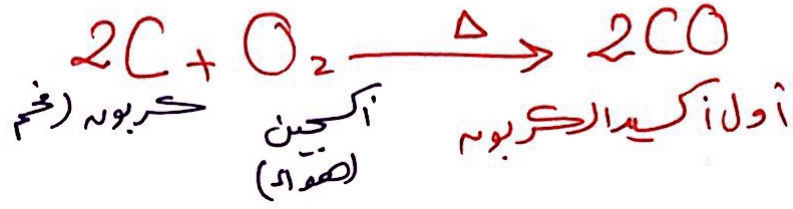 2C + O₂ —Δ→ 2CO
كربون (فحم أكسجين أول أكسيد الكربون
(هواء)